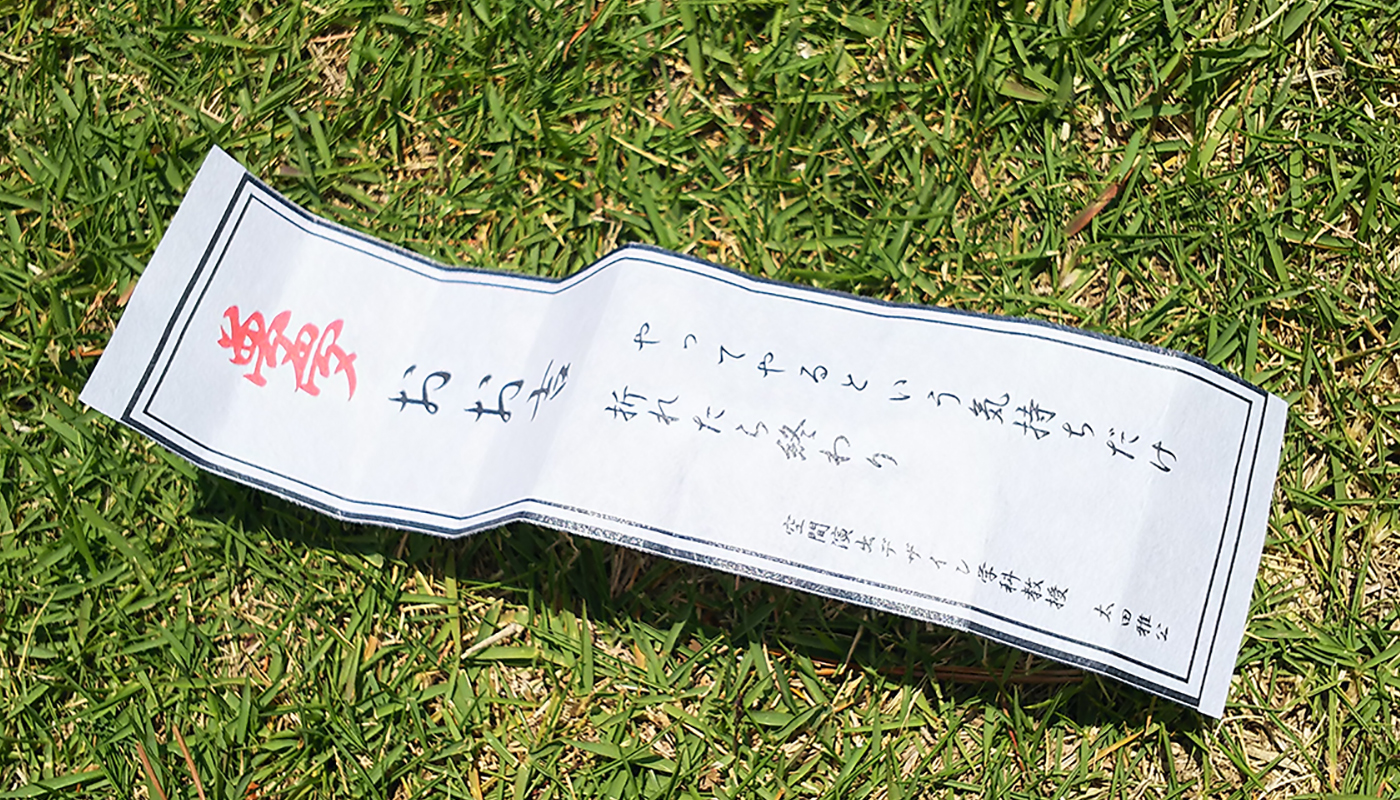 おお吉
やってやるという気持ちだけ
折れたら終わり
空間演出デザイン学科教授 太田雅公